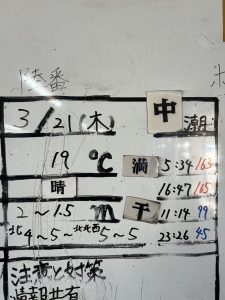 陸番
3/21(木) 中 潮
19 ℃ 満 5:34 163
晴 16:47 165
2～1.5 m 干 11:14 99
北4～5～北北西5～5 23:26 45
注意と対策
情報共有